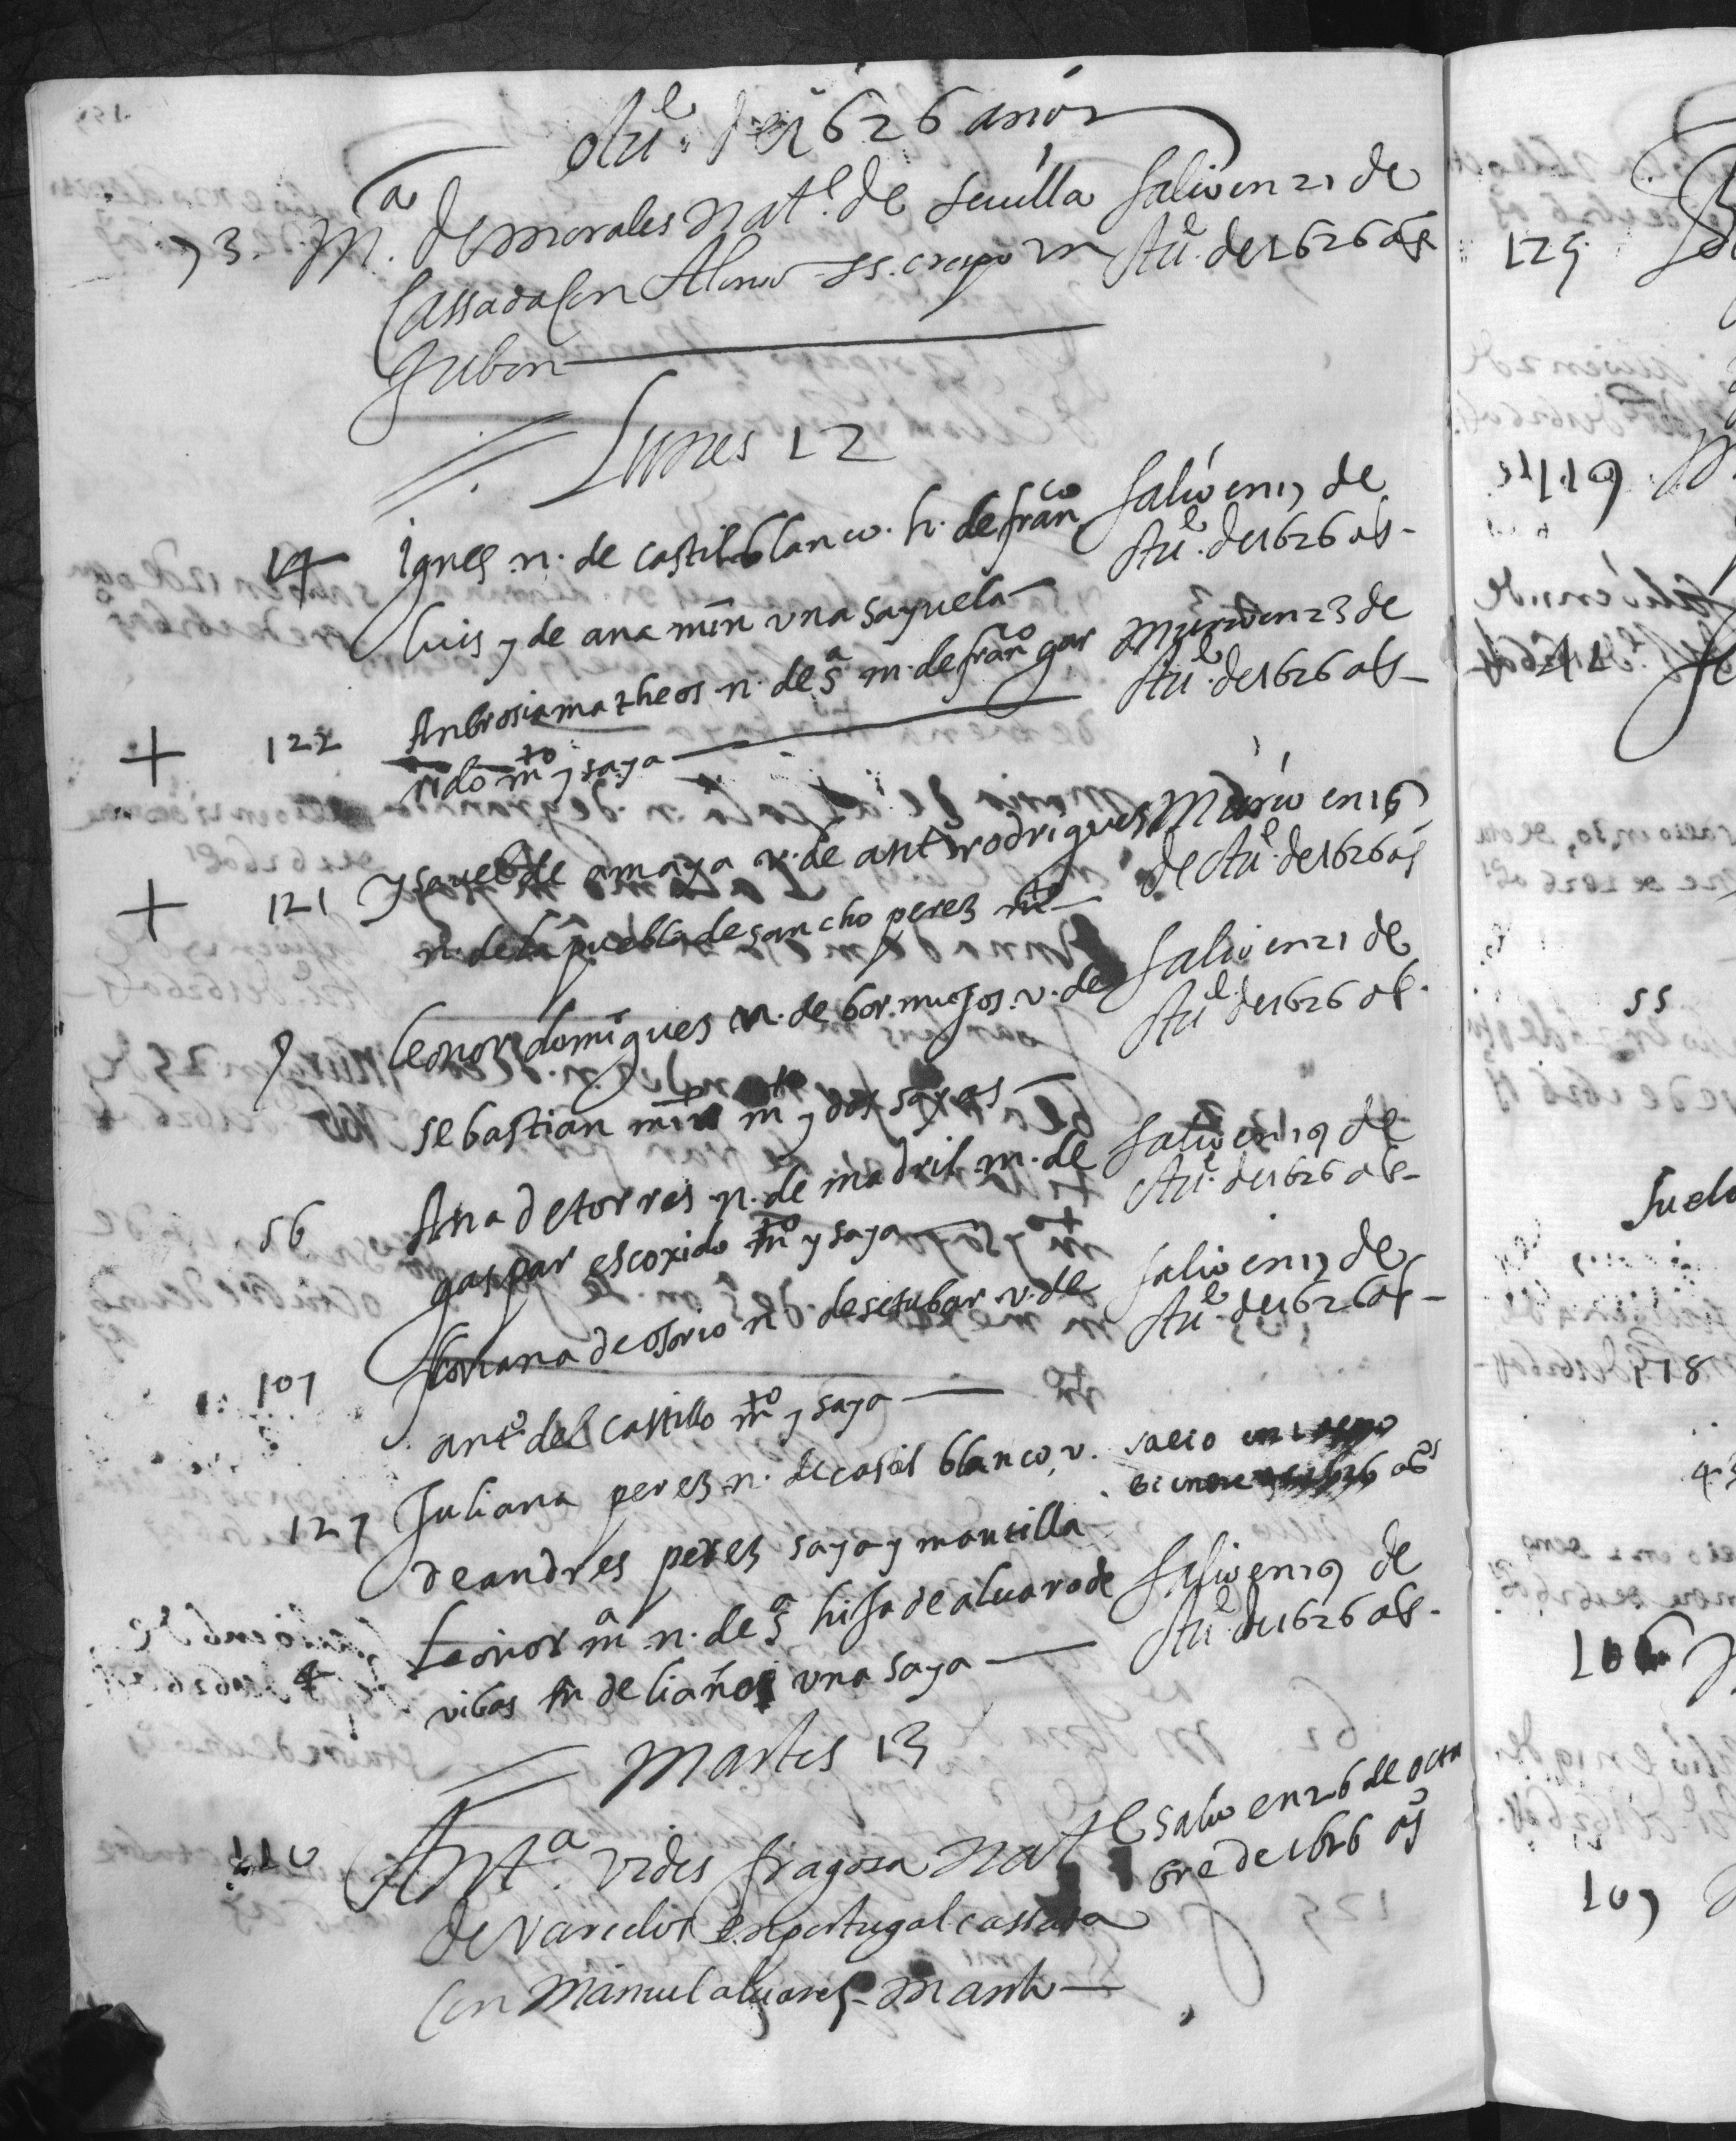 otue. de 1626 años
73 Ma. de morales natl. de seuilla
cassada con Alonso ss. crespo un
Jubon
salio en 21 de
otue. de 1626 as
Lunes 12
14 Ignes n. de castilblanco. h. de franco
luis y de ana mrn una sayuela
salio en 17 de
otue. de 1626 as
+ 122 Anbrosia matheos n. de sa m. de franco gar
rido mto y saya
murio en 23 de
otue. de 1626 as
+ 121 Ysauel de amaya v. de anto rodrigues
n. de la puebla de sancho perez mto
Murio en 16
de otue. de 1626 as
9 leonor domigues n. de bormujos. v. de
sebastian mrn mto y dos sayas
salio en 21 de
otue. de 1626 as
56 Ana de torres n. de madril m. de
gaspar escoxido mto y saya
salio en 19 de
otue. de 1626 as
107 floriana de osorio n. de setubar v. de
anto. del castillo mto y saya
salio en 17 de
otue. de 1626 as
127 Juliana perez n. de castil blanco, v.
de andres perez saya y mantilla
salio en
1626 as
4 Leonor ma n. de sa hija de aluaro de
vibas m de liaño una saya
salio en 19 de
otue. de 1626 as
Martes 13
110 Anta. vides fragosa natl
de varcelos en portugal cassada
con Manuel aluares manto
salio en 26 de octu
bre de 1626 as
125
119
55
Suelo
518
106
107